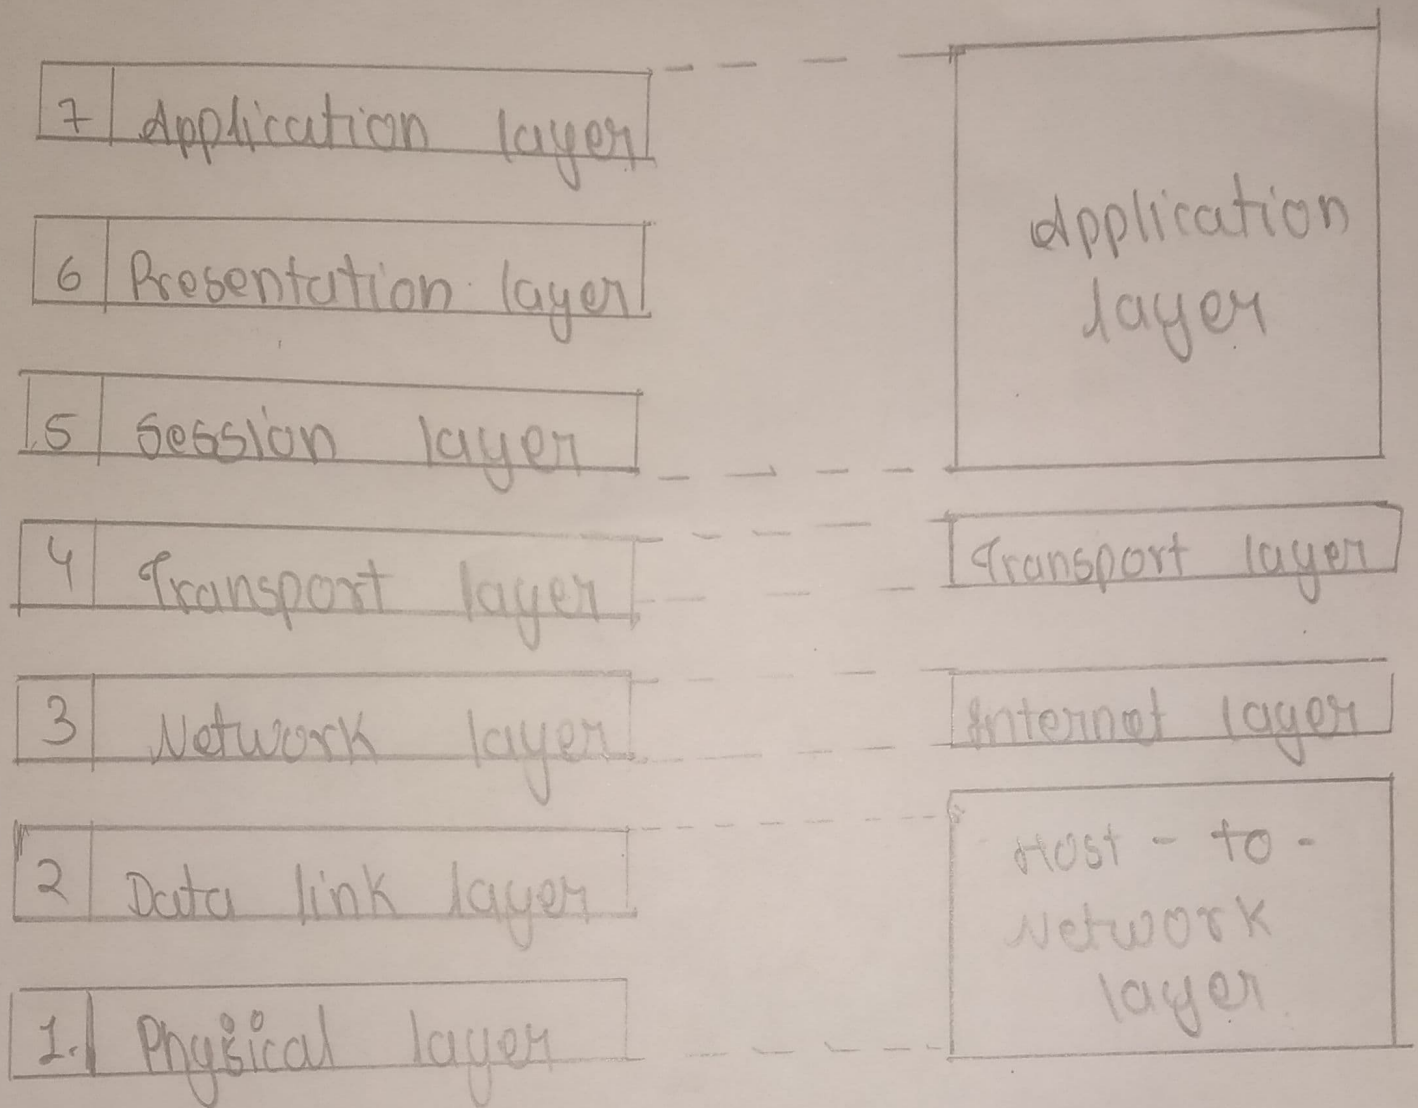 7 Application layer
6 Presentation layer
5 Session layer
4 Transport layer
3 Network layer
2 Data link layer
1. Physical layer
Application
layer
Transport layer
Internet layer
Host - to -
Network
layer